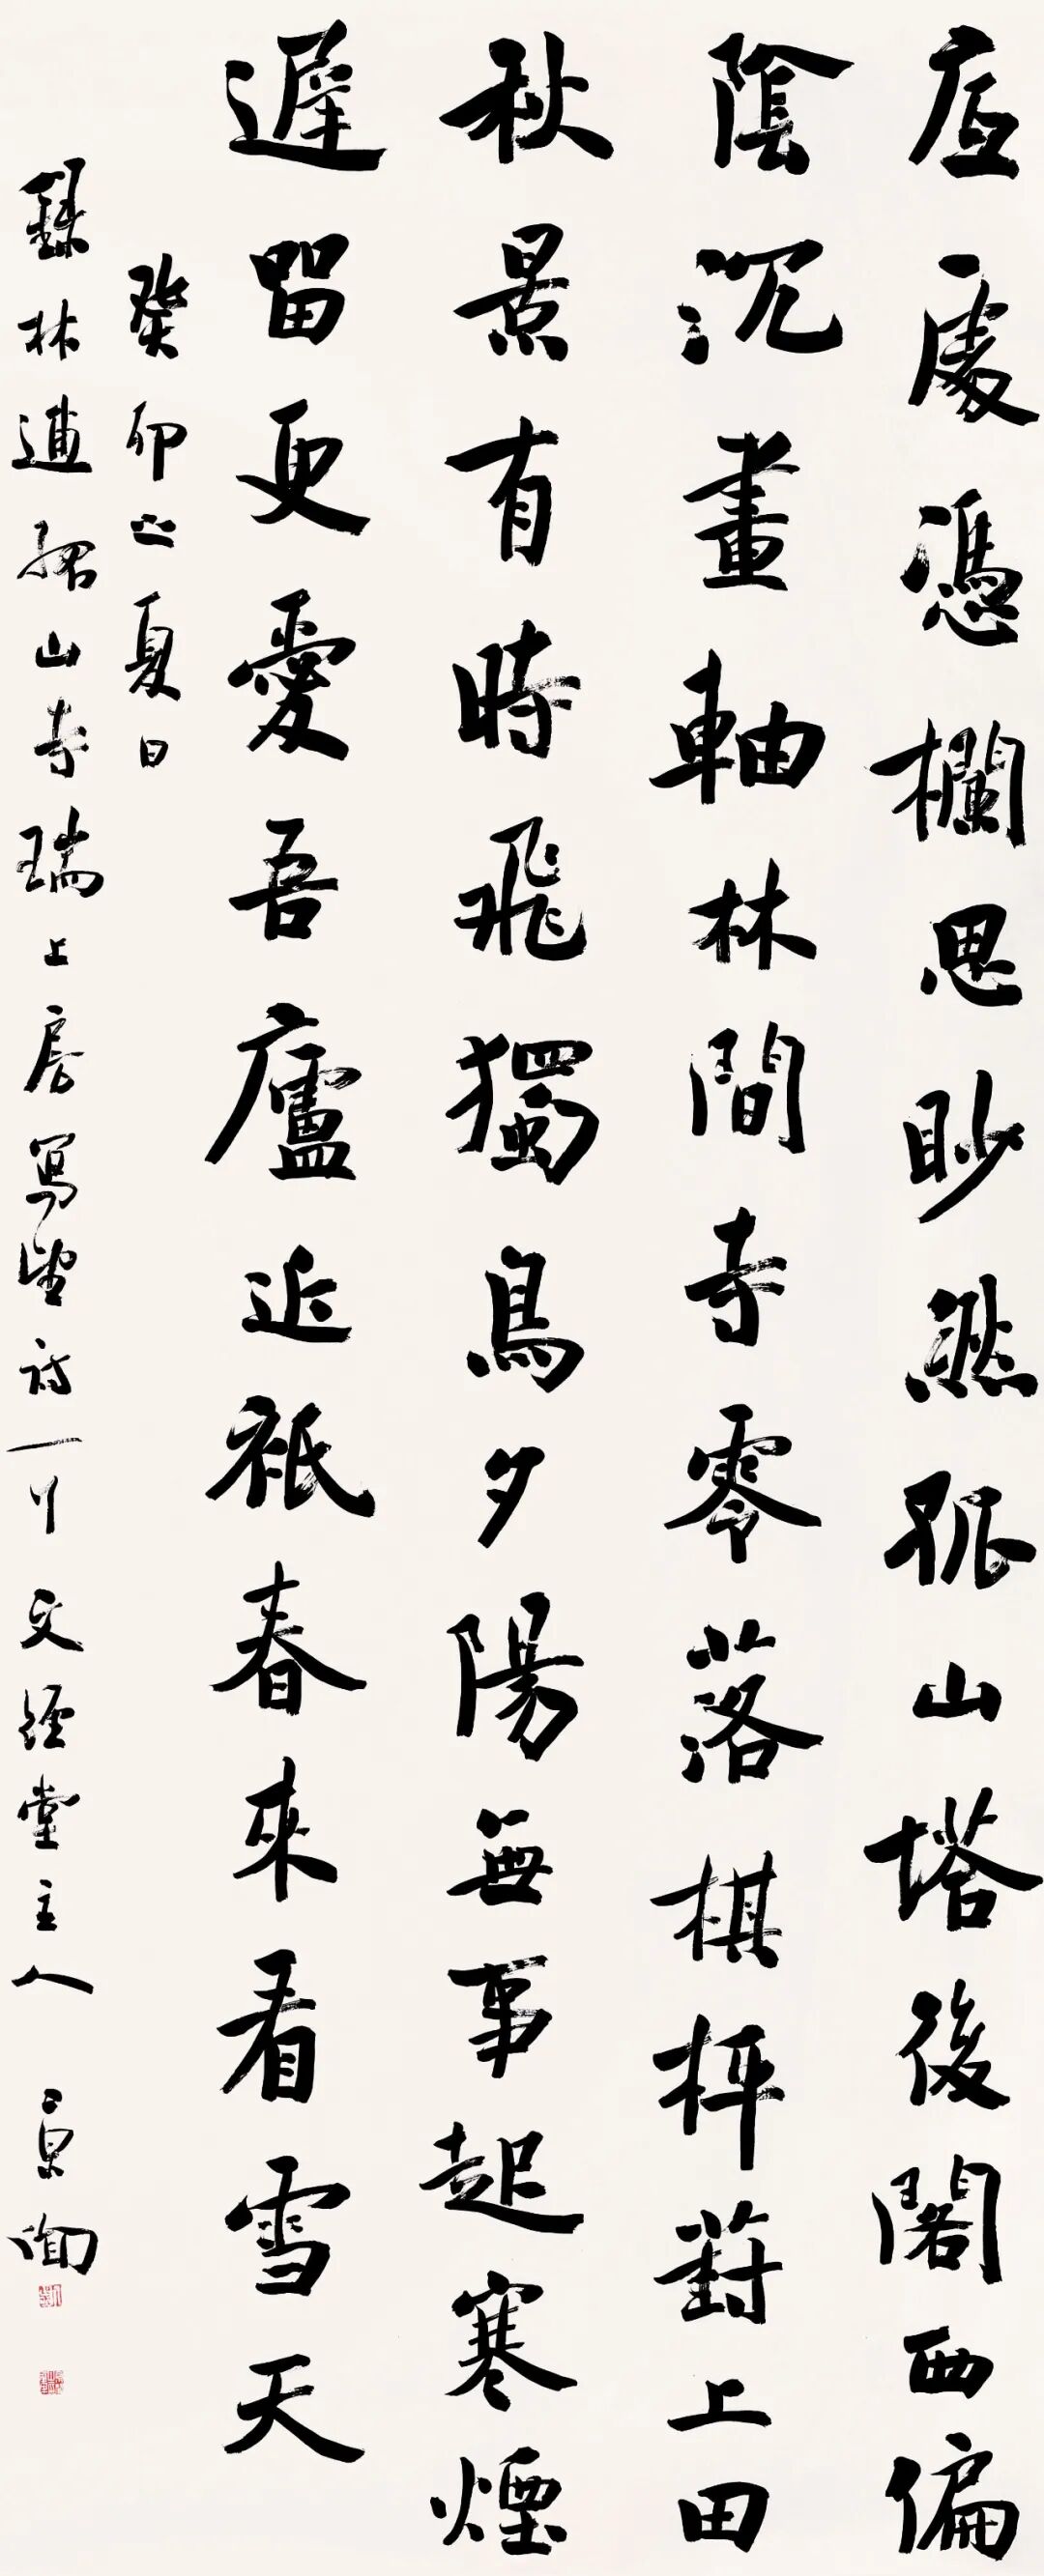 底處憑欄思眇然孤山塔後閣西偏
陰沉畫軸林間寺零落棋枰葑上田
秋景有時飛獨鳥夕陽無事起寒煙
遲留更愛吾廬近祇春來看雪天
癸卯之夏日
錄林逋孤山寺瑞上房寫望詩一 文經堂主人